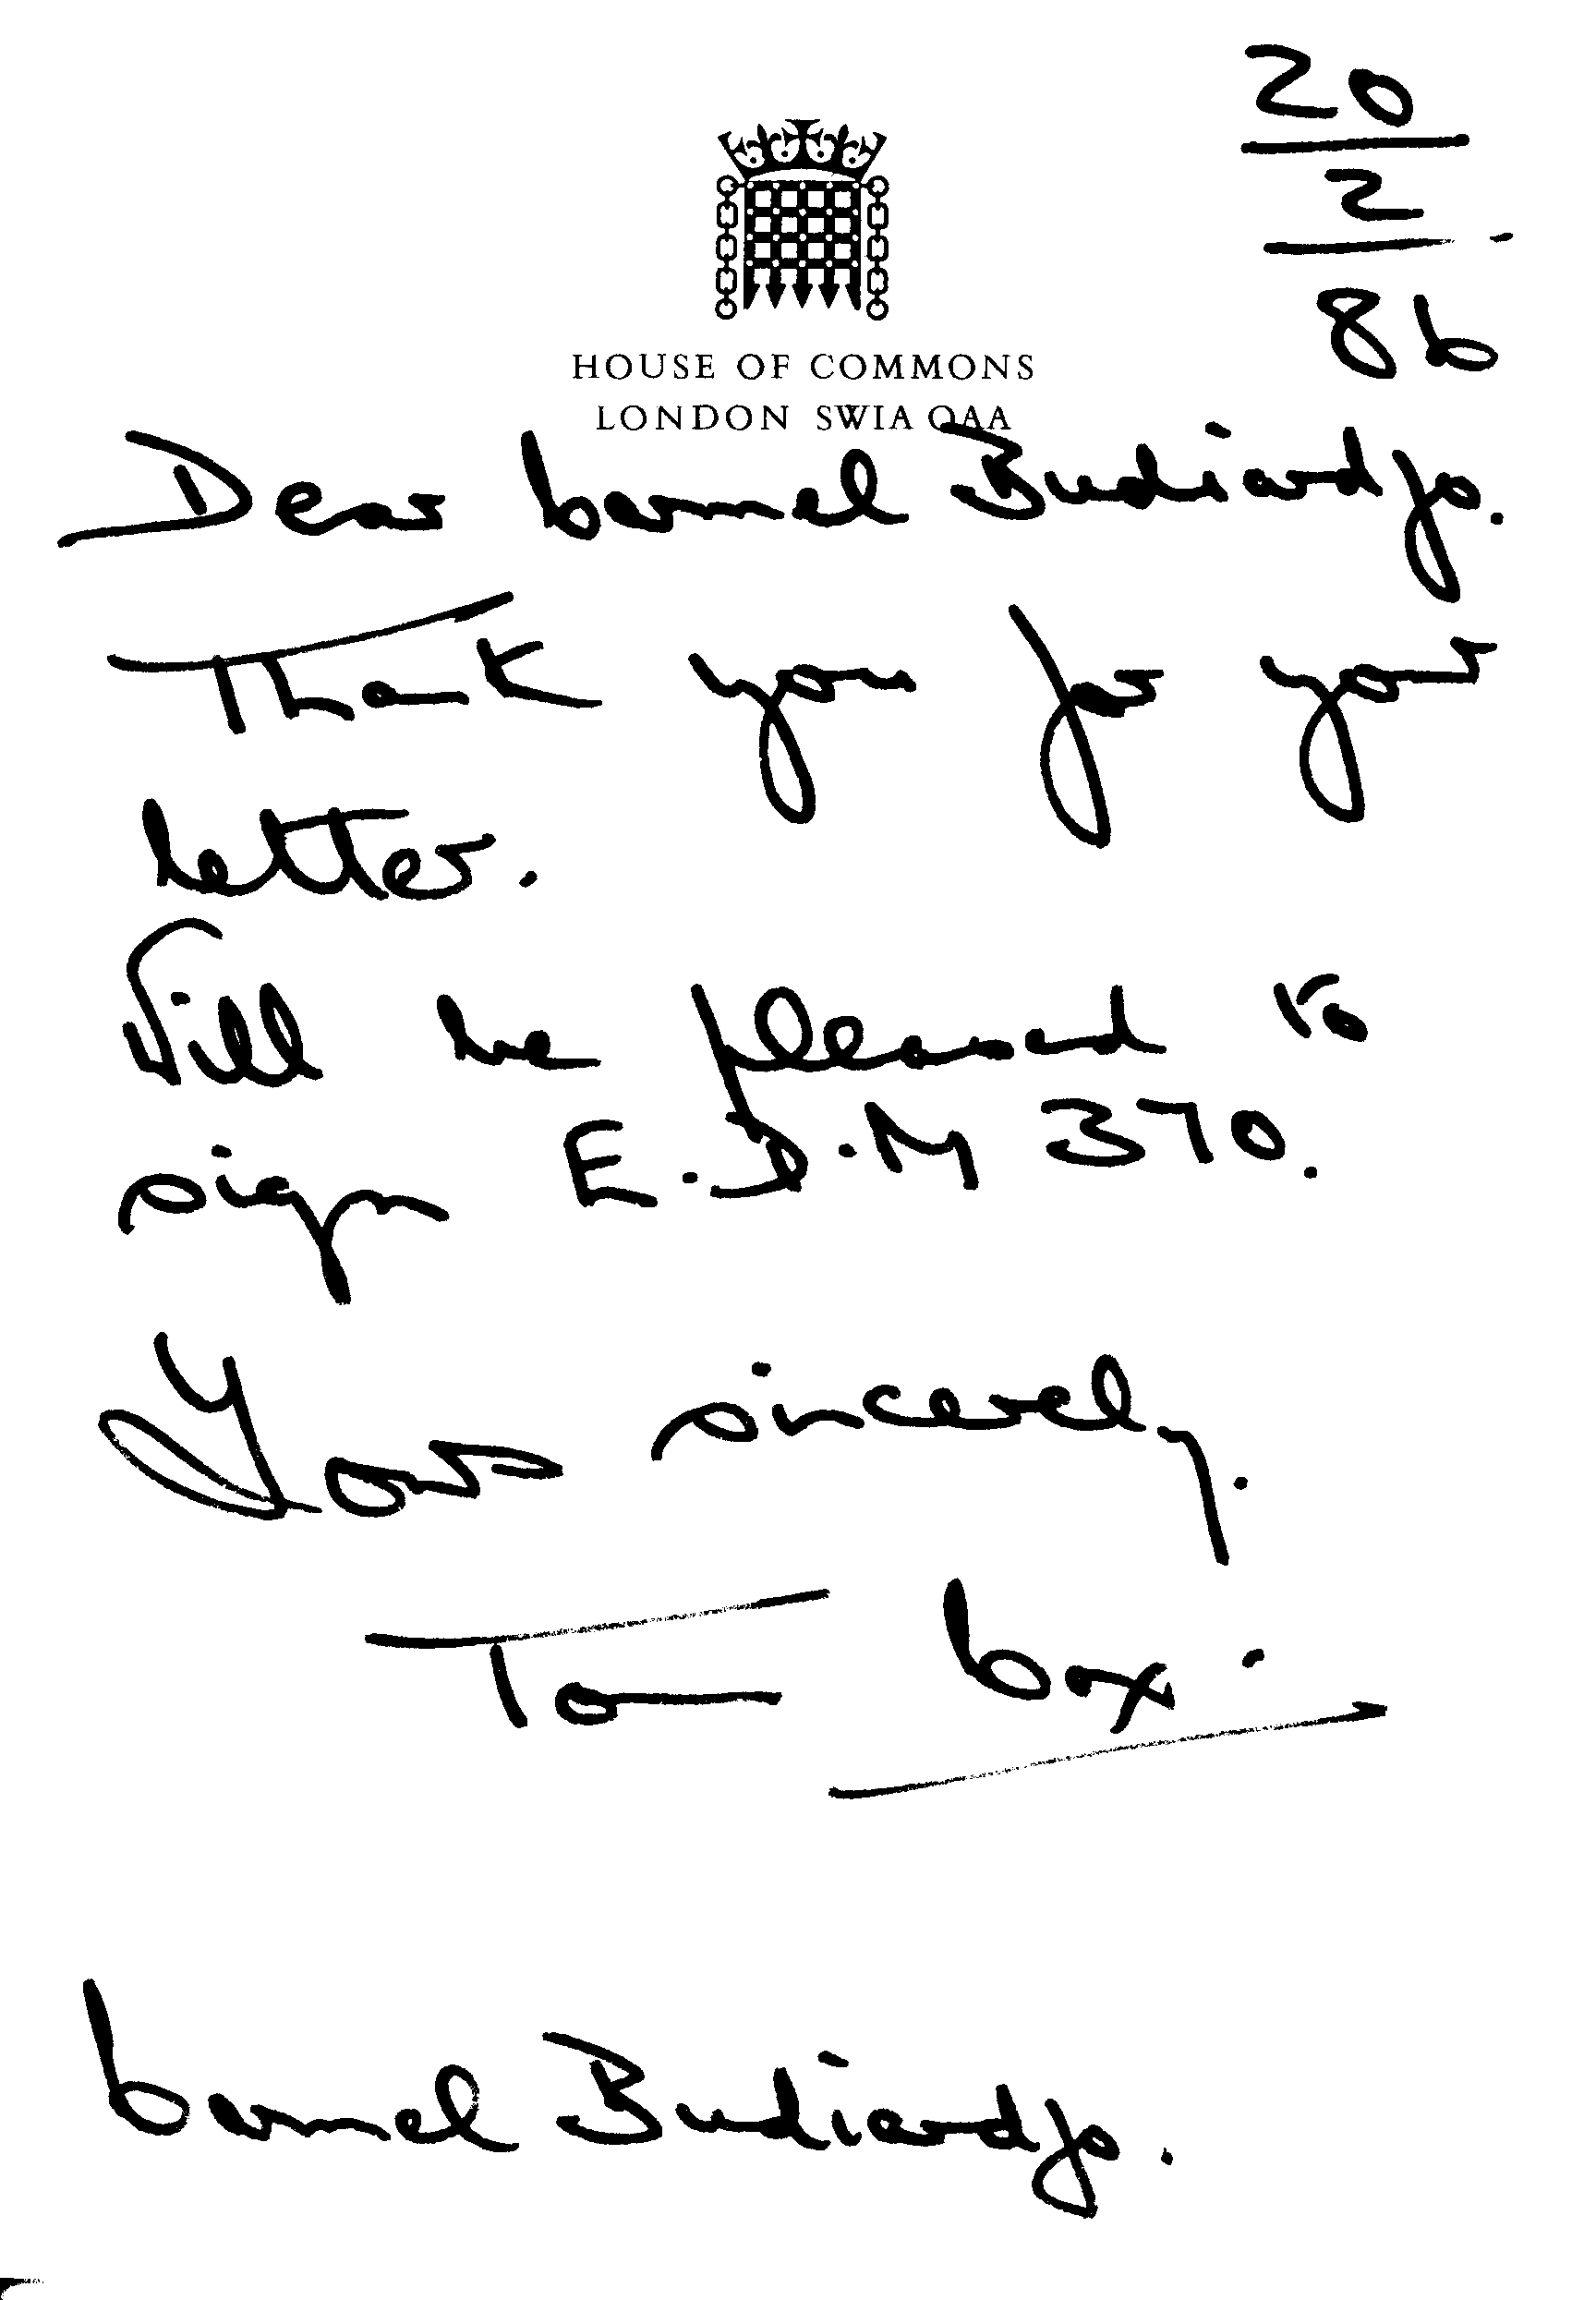 20
2
86
HOUSE OF COMMONS
LONDON SW1A 0AA
Dear Carmel Budiardjo.
Thank you for your
letter.
Will be pleased to
sign E.D.M 370.
Yours sincerely.
Tom Cox.
Carmel Budiardjo.